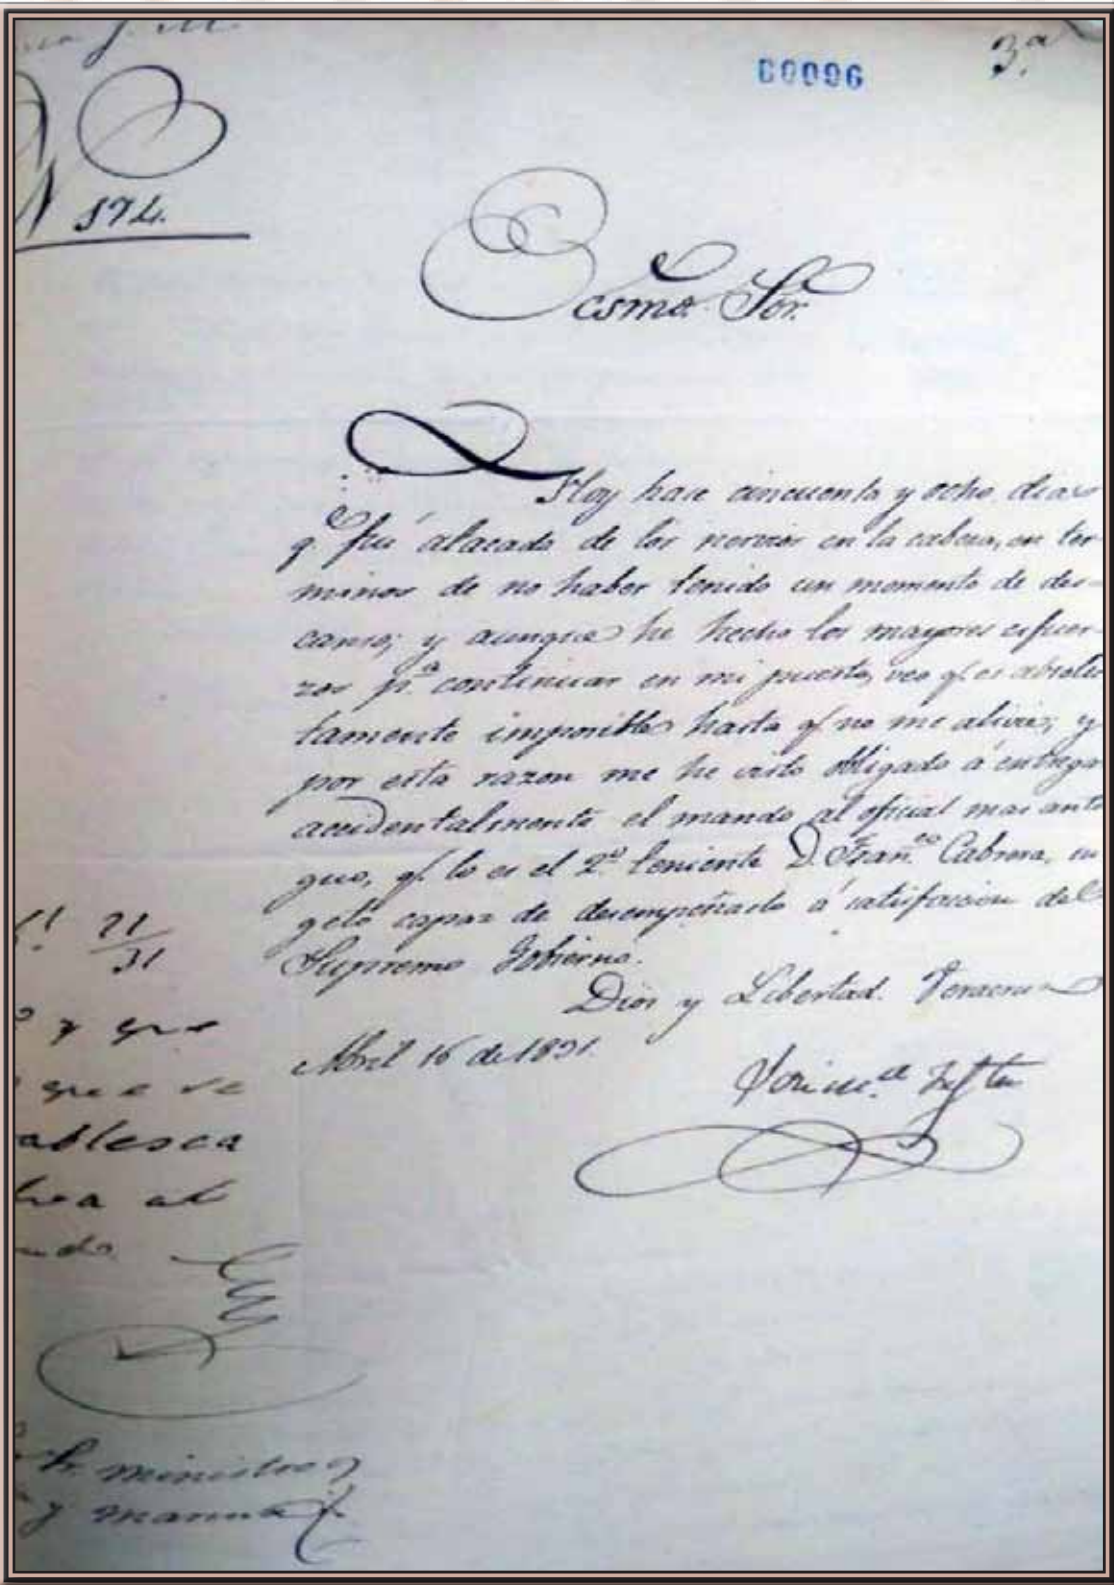 00096
3.ª
N 174.
Ecsmo. Sor.
Hoy hace cincuenta y ocho dias
q. fuí atacado de los nervios en la cabesa, en ter-
minos de no haber tenido un momento de des-
canso; y aunque he hecho los mayores esfuer-
zos pª continuar en mi puesto, veo q. es absolu
tamente imposible hasta q. no me alivie; y
por esta razon me he visto obligado á entregar
accidentalmente el mando al oficial mas anti
guo, q. lo es el 2º teniente D. Franco Cabrera, su
geto capaz de desempeñarlo á satisfaccion del
Supremo Gobierno.
Dios y Libertad. Veracruz
Abril 16 de 1831.
José
21
31
y que
que se
ablesca
al
Sr. ministro
y marina